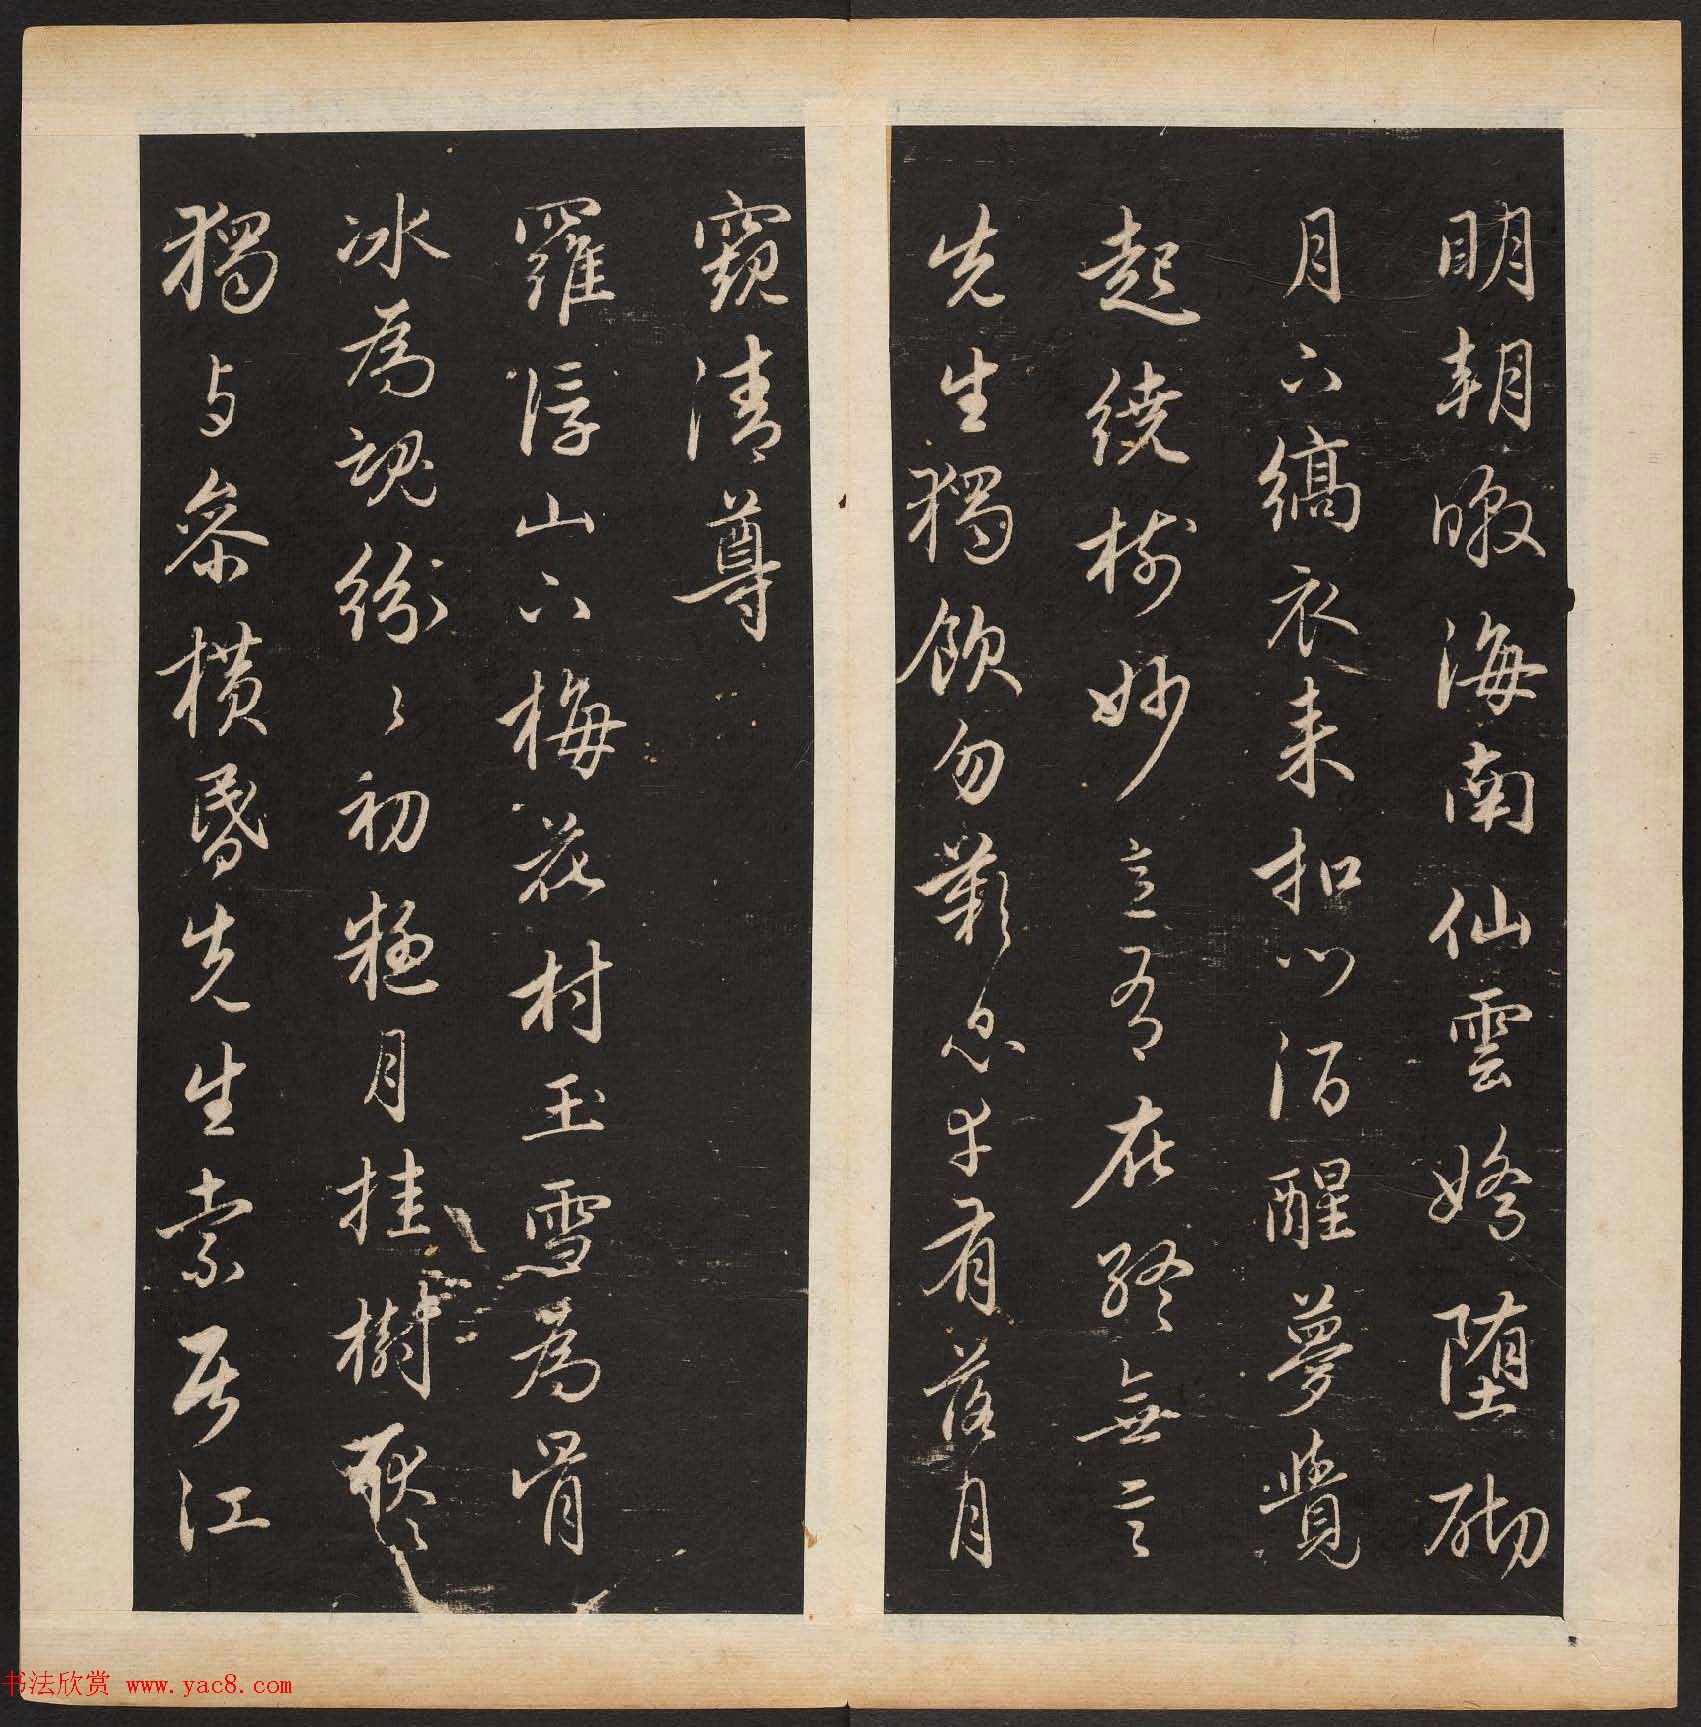 明朝暾海南仙雲嬌墮砌
月下縞衣来扣门酒醒夢覺
起繞樹妙意有在終無言
先生獨飲勿歎息幸有落月
窺清尊
羅浮山下梅花村玉雪為骨
冰為魂紛〻初疑月挂樹耿〻
獨与參橫昏先生索居江
书法欣赏 www.yac8.com